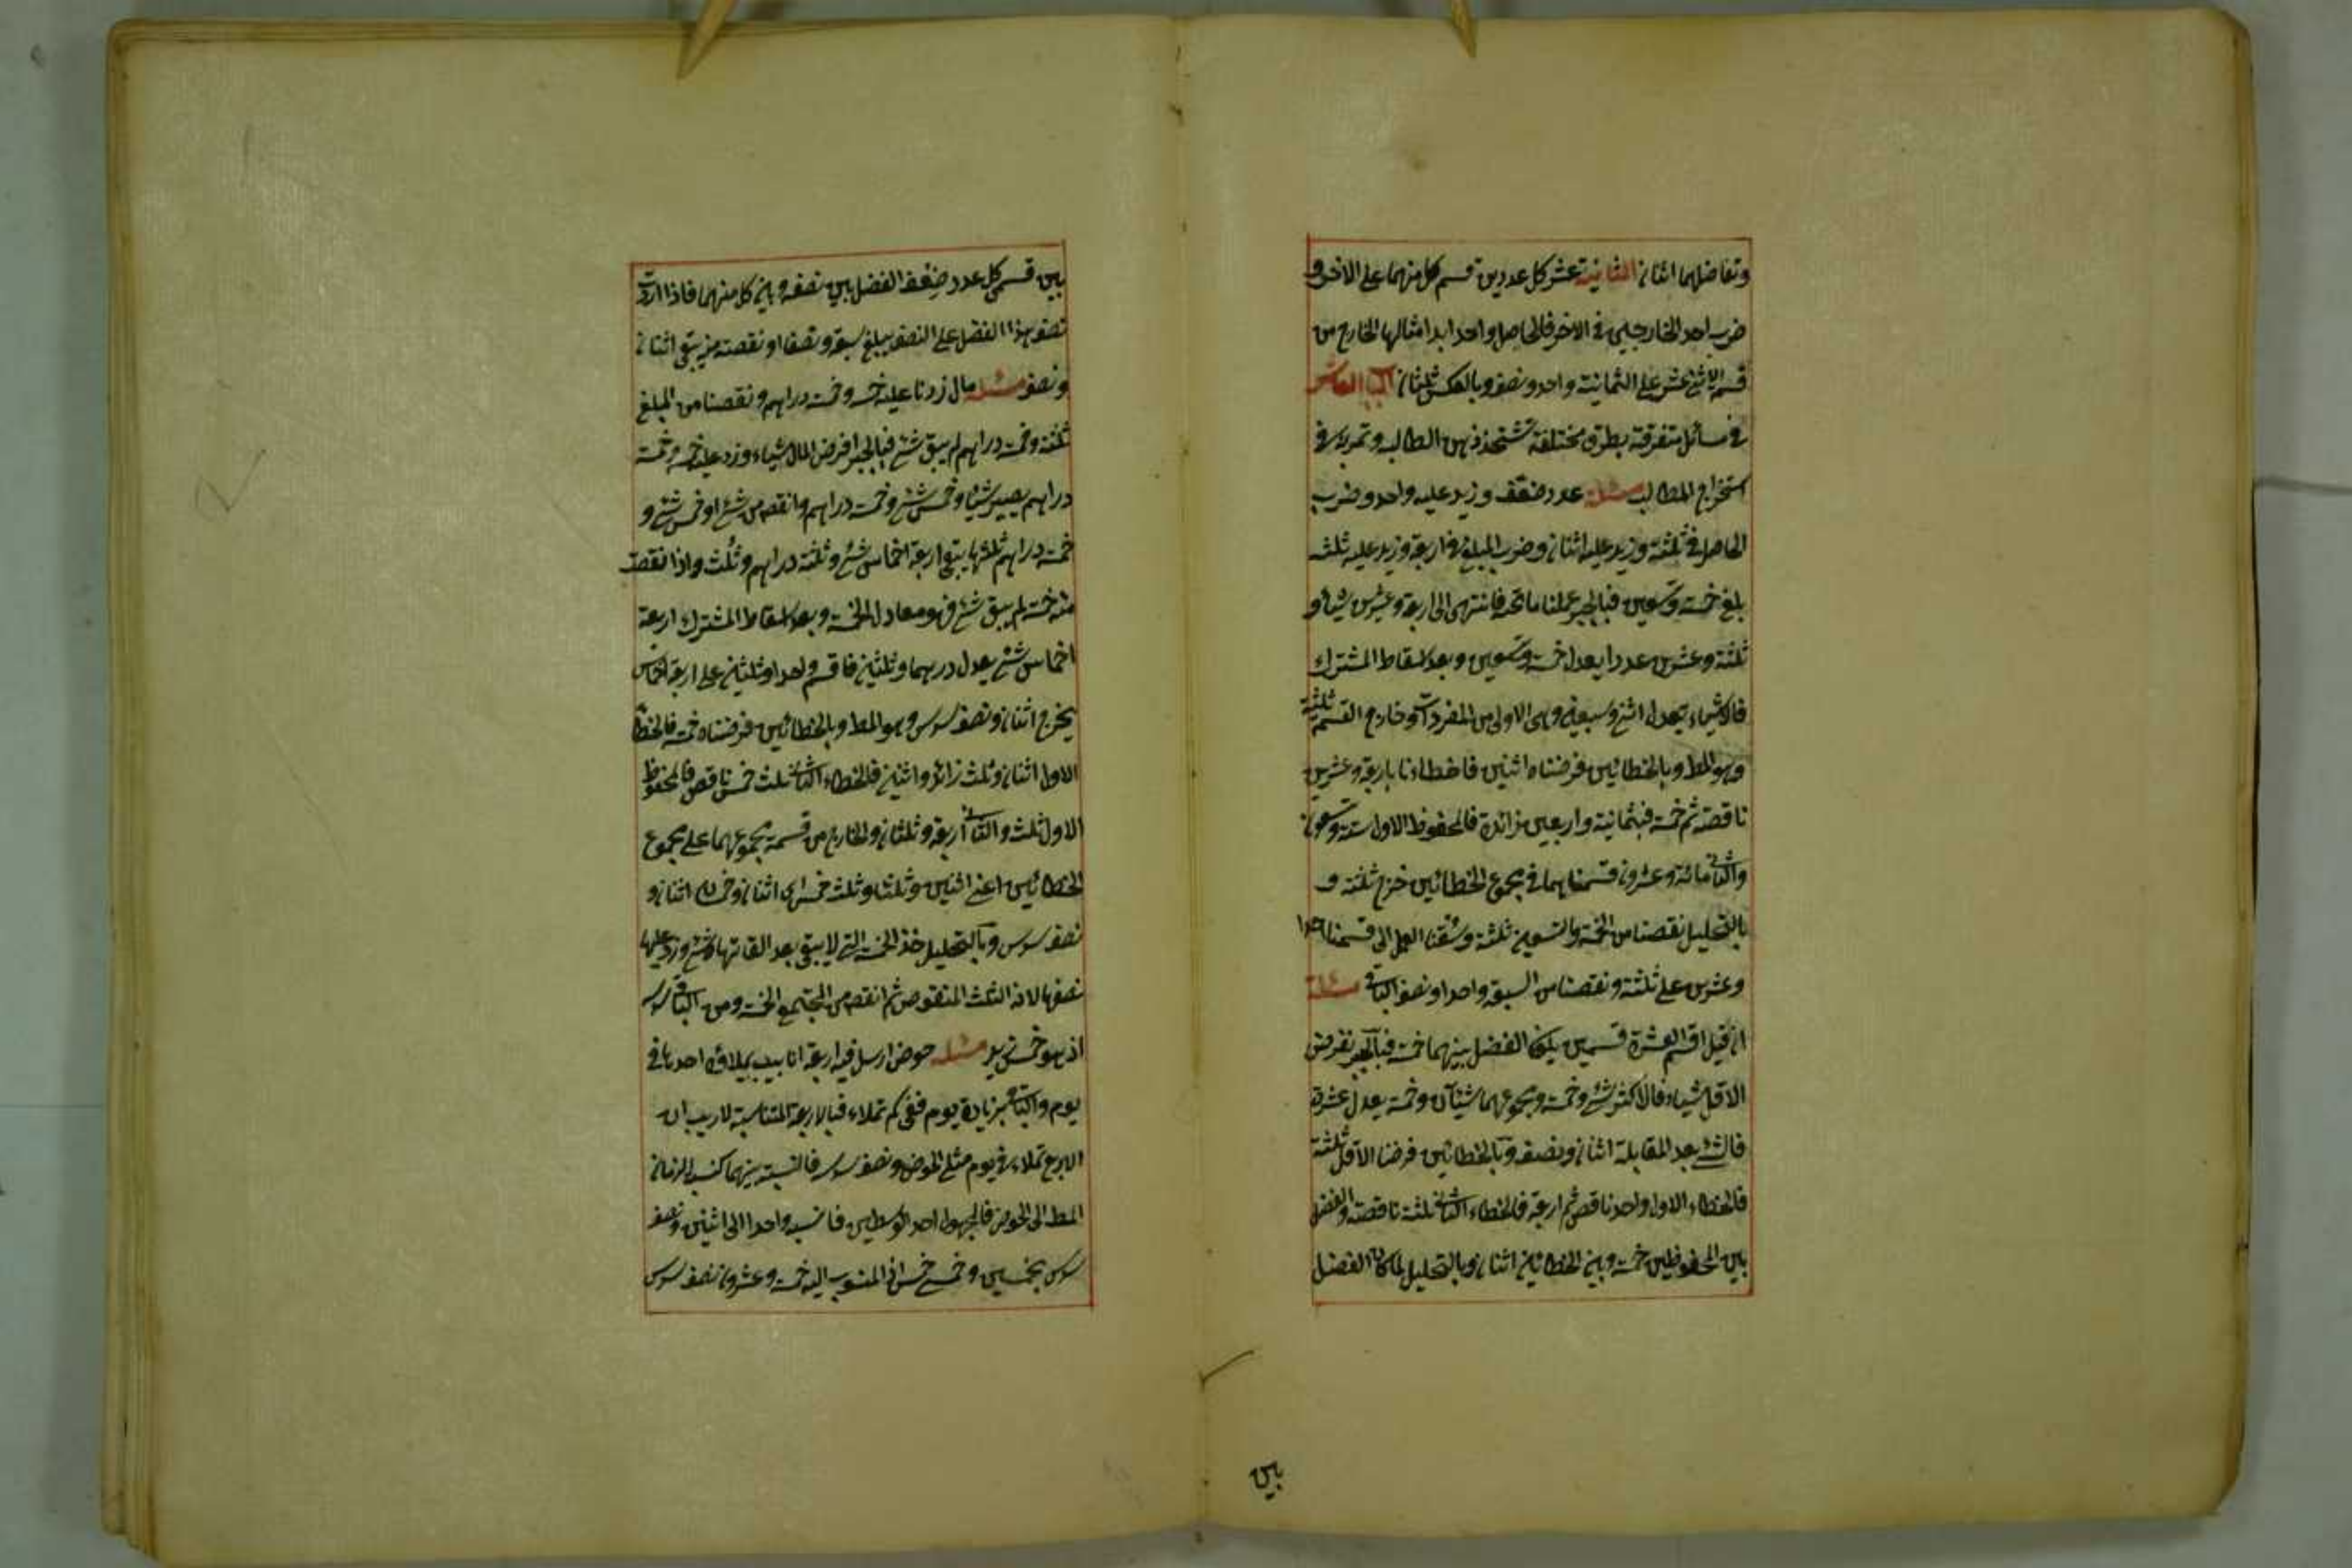 وتفاضلهما اثنان الثانية عشر كل عددين قسم كل منهما على الاخر و
ضرب احد الخارجين في الاخر فالحاصل واحد ابدا مثالها الخارج من
قسمة الاثنى عشر على الثمانية واحد ونصف وبالعكس ثلثان الباب العاشر
في مسائل متفرقة بطرق مختلفة تشحذ ذهن الطالب وتمرنه في
استخراج المطالب مسئلة عدد ضعف وزيد عليه واحد وضرب
الحاصل في ثلثة وزيد عليه اثنان وضرب المبلغ في اربعة وزيد عليه ثلثة
بلغ خمسة وتسعين فبالجبر عملنا ماتحد فانتهى الى اربعة وعشرين شيئا و
ثلثة وعشرين عددا يعدل خمسة وتسعين وبعد اسقاط المشترك
فالاشياء تعدل اثنين وسبعين وهى الاولى من المفردات وخارج القسمة ثلثة
وهو المط وبالخطائين فرضناه اثنين فاخطاءنا باربعة وعشرين
ناقصة ثم خمسة فبثمانية واربعين زائدة فالمحفوظ الاول ستة وتسعون
والثانى مائة وعشرون قسمناهما في مجموع الخطائين خرج ثلثة و
بالتحليل نقصنا من الخمسة والتسعين ثلثة وسقنا العمل الى قسمنا احد
وعشرين على ثلثة ونقصنا من السبعة واحدا ونصف الباقى مسئلة
ان قيل اقسم العشرة قسمين يكون الفضل بينهما خمسة فبالجبر نفرض
الاقل شيئا فالاكثر شئ وخمسة ومجموعهما شيئان وخمسة يعدل عشرة
فالشئ بعد المقابلة اثنان ونصف وبالخطائين فرضنا الاقل ثلثة
فالخطاء الاول واحد ناقص ثم اربعة فالخطاء الثانى ثلثة ناقصة والفضل
بين المحفوظين خمسة وبين الخطائين اثنان وبالتحليل لما كان الفضل
بين
بين قسمى كل عدد ضعف الفضل بين نصفه وبين كل منهما فاذا زدت
نصف هذا الفضل على النصف يبلغ سبعة ونصفا او نقصته منه يبقى اثنان
ونصف مسئلة مال زدنا عليه خمسه وخمسة دراهم ونقصنا من المبلغ
ثلثه وخمسة دراهم لم يبق شئ فبالجبر افرض المال شيئا وزد عليه خمسه وخمسة
دراهم يصير شيئا وخمس شئ وخمسة دراهم وانقص من شئ وخمس شئ و
خمسة دراهم ثلثها يبقى اربعة اخماس شئ وثلثة دراهم وثلث واذا نقصت
منه خمسة لم يبق شئ فهو معادل الخمسة وبعد اسقاط المشترك اربعة
اخماس شئ يعدل درهما وثلثين فاقسم واحدا وثلثين على اربعة اخماس
يخرج اثنان ونصف سدس وهو المط وبالخطائين فرضناه خمسة فالخطا
الاول اثنان وثلث زائد واثنين فالخطاء الثانى ثلث خمس ناقص فالمحفوظ
الاول ثلث والثانى اربعة وثلثان والخارج من قسمة مجموعهما على مجموع
الخطائين اعنى اثنين وثلثا وثلث خمس اى اثنان وخمسان اثنان و
نصف سدس وبالتحليل خذ الخمسة التى لا يبقى بعد القائها شئ وزد عليها
نصفها لانه الثلث المنقوص ثم انقص من المجتمع الخمسة ومن الباقى سدسه
اذ هو خمس زيد مسئلة حوض ارسل فيه اربعة انابيب يملاؤه احدها في
يوم والباقى بزيادة يوم ففى كم تملاء فبالاربعة المتناسبة لاريب ان
الاربع تملاء في يوم مثلى الحوض ونصف سدسه فالنسبة بينهما كنسبة الزمان
المط الى الحوض فالمجهول احد الوسطين فانسب واحدا الى اثنين ونصف
سدس بخمسين وخمسى خمس اذ المنسوب اليه خمسة وعشرون نصف سدس